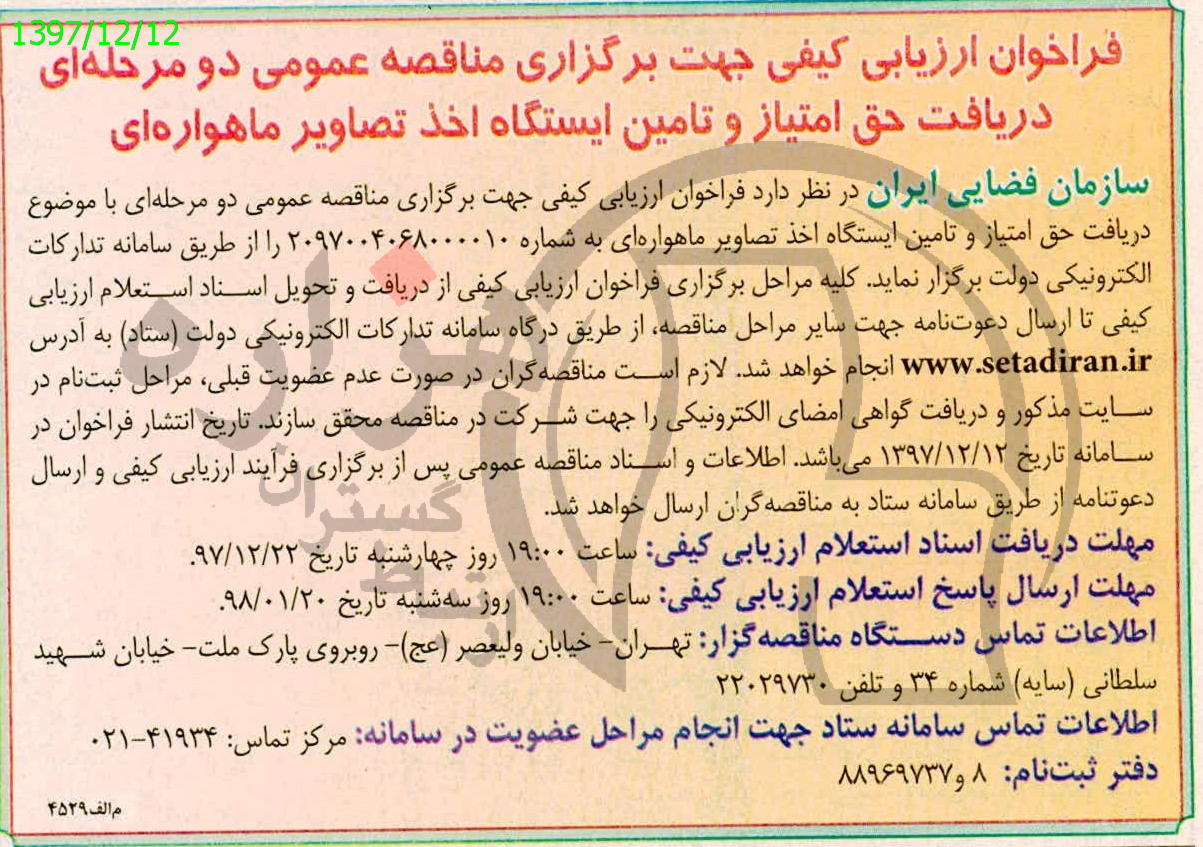 1397/12/12
فراخوان ارزیابی کیفی جهت برگزاری مناقصه عمومی دو مرحله‌ای
دریافت حق امتیاز و تامین ایستگاه اخذ تصاویر ماهواره‌ای
سازمان فضایی ایران در نظر دارد فراخوان ارزیابی کیفی جهت برگزاری مناقصه عمومی دو مرحله‌ای با موضوع
دریافت حق امتیاز و تامین ایستگاه اخذ تصاویر ماهواره‌ای به شماره ۲۰۹۷۰۰۴۰۶۸۰۰۰۰۱۰ را از طریق سامانه تدارکات
الکترونیکی دولت برگزار نماید. کلیه مراحل برگزاری فراخوان ارزیابی کیفی از دریافت و تحویل اسناد استعلام ارزیابی
کیفی تا ارسال دعوت‌نامه جهت سایر مراحل مناقصه، از طریق درگاه سامانه تدارکات الکترونیکی دولت (ستاد) به آدرس
www.setadiran.ir انجام خواهد شد. لازم است مناقصه‌گران در صورت عدم عضویت قبلی، مراحل ثبت‌نام در
سایت مذکور و دریافت گواهی امضای الکترونیکی را جهت شرکت در مناقصه محقق سازند. تاریخ انتشار فراخوان در
سامانه تاریخ ۱۳۹۷/۱۲/۱۲ می‌باشد. اطلاعات و اسناد مناقصه عمومی پس از برگزاری فرآیند ارزیابی کیفی و ارسال
دعوتنامه از طریق سامانه ستاد به مناقصه‌گران ارسال خواهد شد.
مهلت دریافت اسناد استعلام ارزیابی کیفی: ساعت ۱۹:۰۰ روز چهارشنبه تاریخ ۹۷/۱۲/۲۲.
مهلت ارسال پاسخ استعلام ارزیابی کیفی: ساعت ۱۹:۰۰ روز سه‌شنبه تاریخ ۹۸/۰۱/۲۰.
اطلاعات تماس دستگاه مناقصه‌گزار: تهران- خیابان ولیعصر (عج)- روبروی پارک ملت- خیابان شهید
سلطانی (سایه) شماره ۳۴ و تلفن ۲۲۰۲۹۷۳۰
اطلاعات تماس سامانه ستاد جهت انجام مراحل عضویت در سامانه: مرکز تماس: ۴۱۹۳۴-۰۲۱
دفتر ثبت‌نام: ۸ و۸۸۹۶۹۷۳۷
م‌الف۴۵۲۹
هزاره
گستران
ارتباط